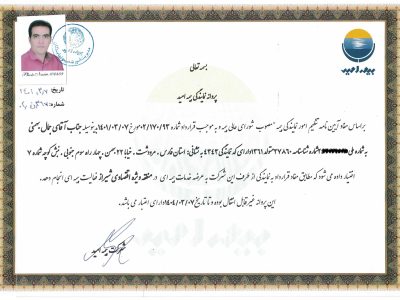 بسمه تعالی
پروانه نمایندگی بیمه امید
تاریخ: ۱۴۰۱/۰۳/۰۷
شماره:
براساس مفاد آیین نامه تنظیم امور نمایندگی بیمه مصوب شورای عالی بیمه و به موجب قرارداد شماره ۰۲/۱۷۰/۹۳ مورخ ۱۴۰۱/۰۳/۰۷ بدینوسیله جناب آقای جمال بهمنی
به شماره ملی شماره شناسنامه ۲۷۸۶۰ متولد ۱۳۶۱ دارای کد نمایندگی ۴۳۴۳ به نشانی: استان فارس، مرودشت، خیابان ۲۲ بهمن، چهار راه سوم جنوبی، نبش کوچه شماره ۷
اختیار داده می شود که مطابق مفاد قرارداد به نمایندگی از طرف این شرکت به عرضه خدمات بیمه ای در منطقه ویژه اقتصادی شیراز فعالیت بیمه ای انجام دهد.
این پروانه غیر قابل انتقال بوده و تا تاریخ ۱۴۰۴/۰۳/۰۷ دارای اعتبار می باشد.
شرکت بیمه امید
بیمه امید